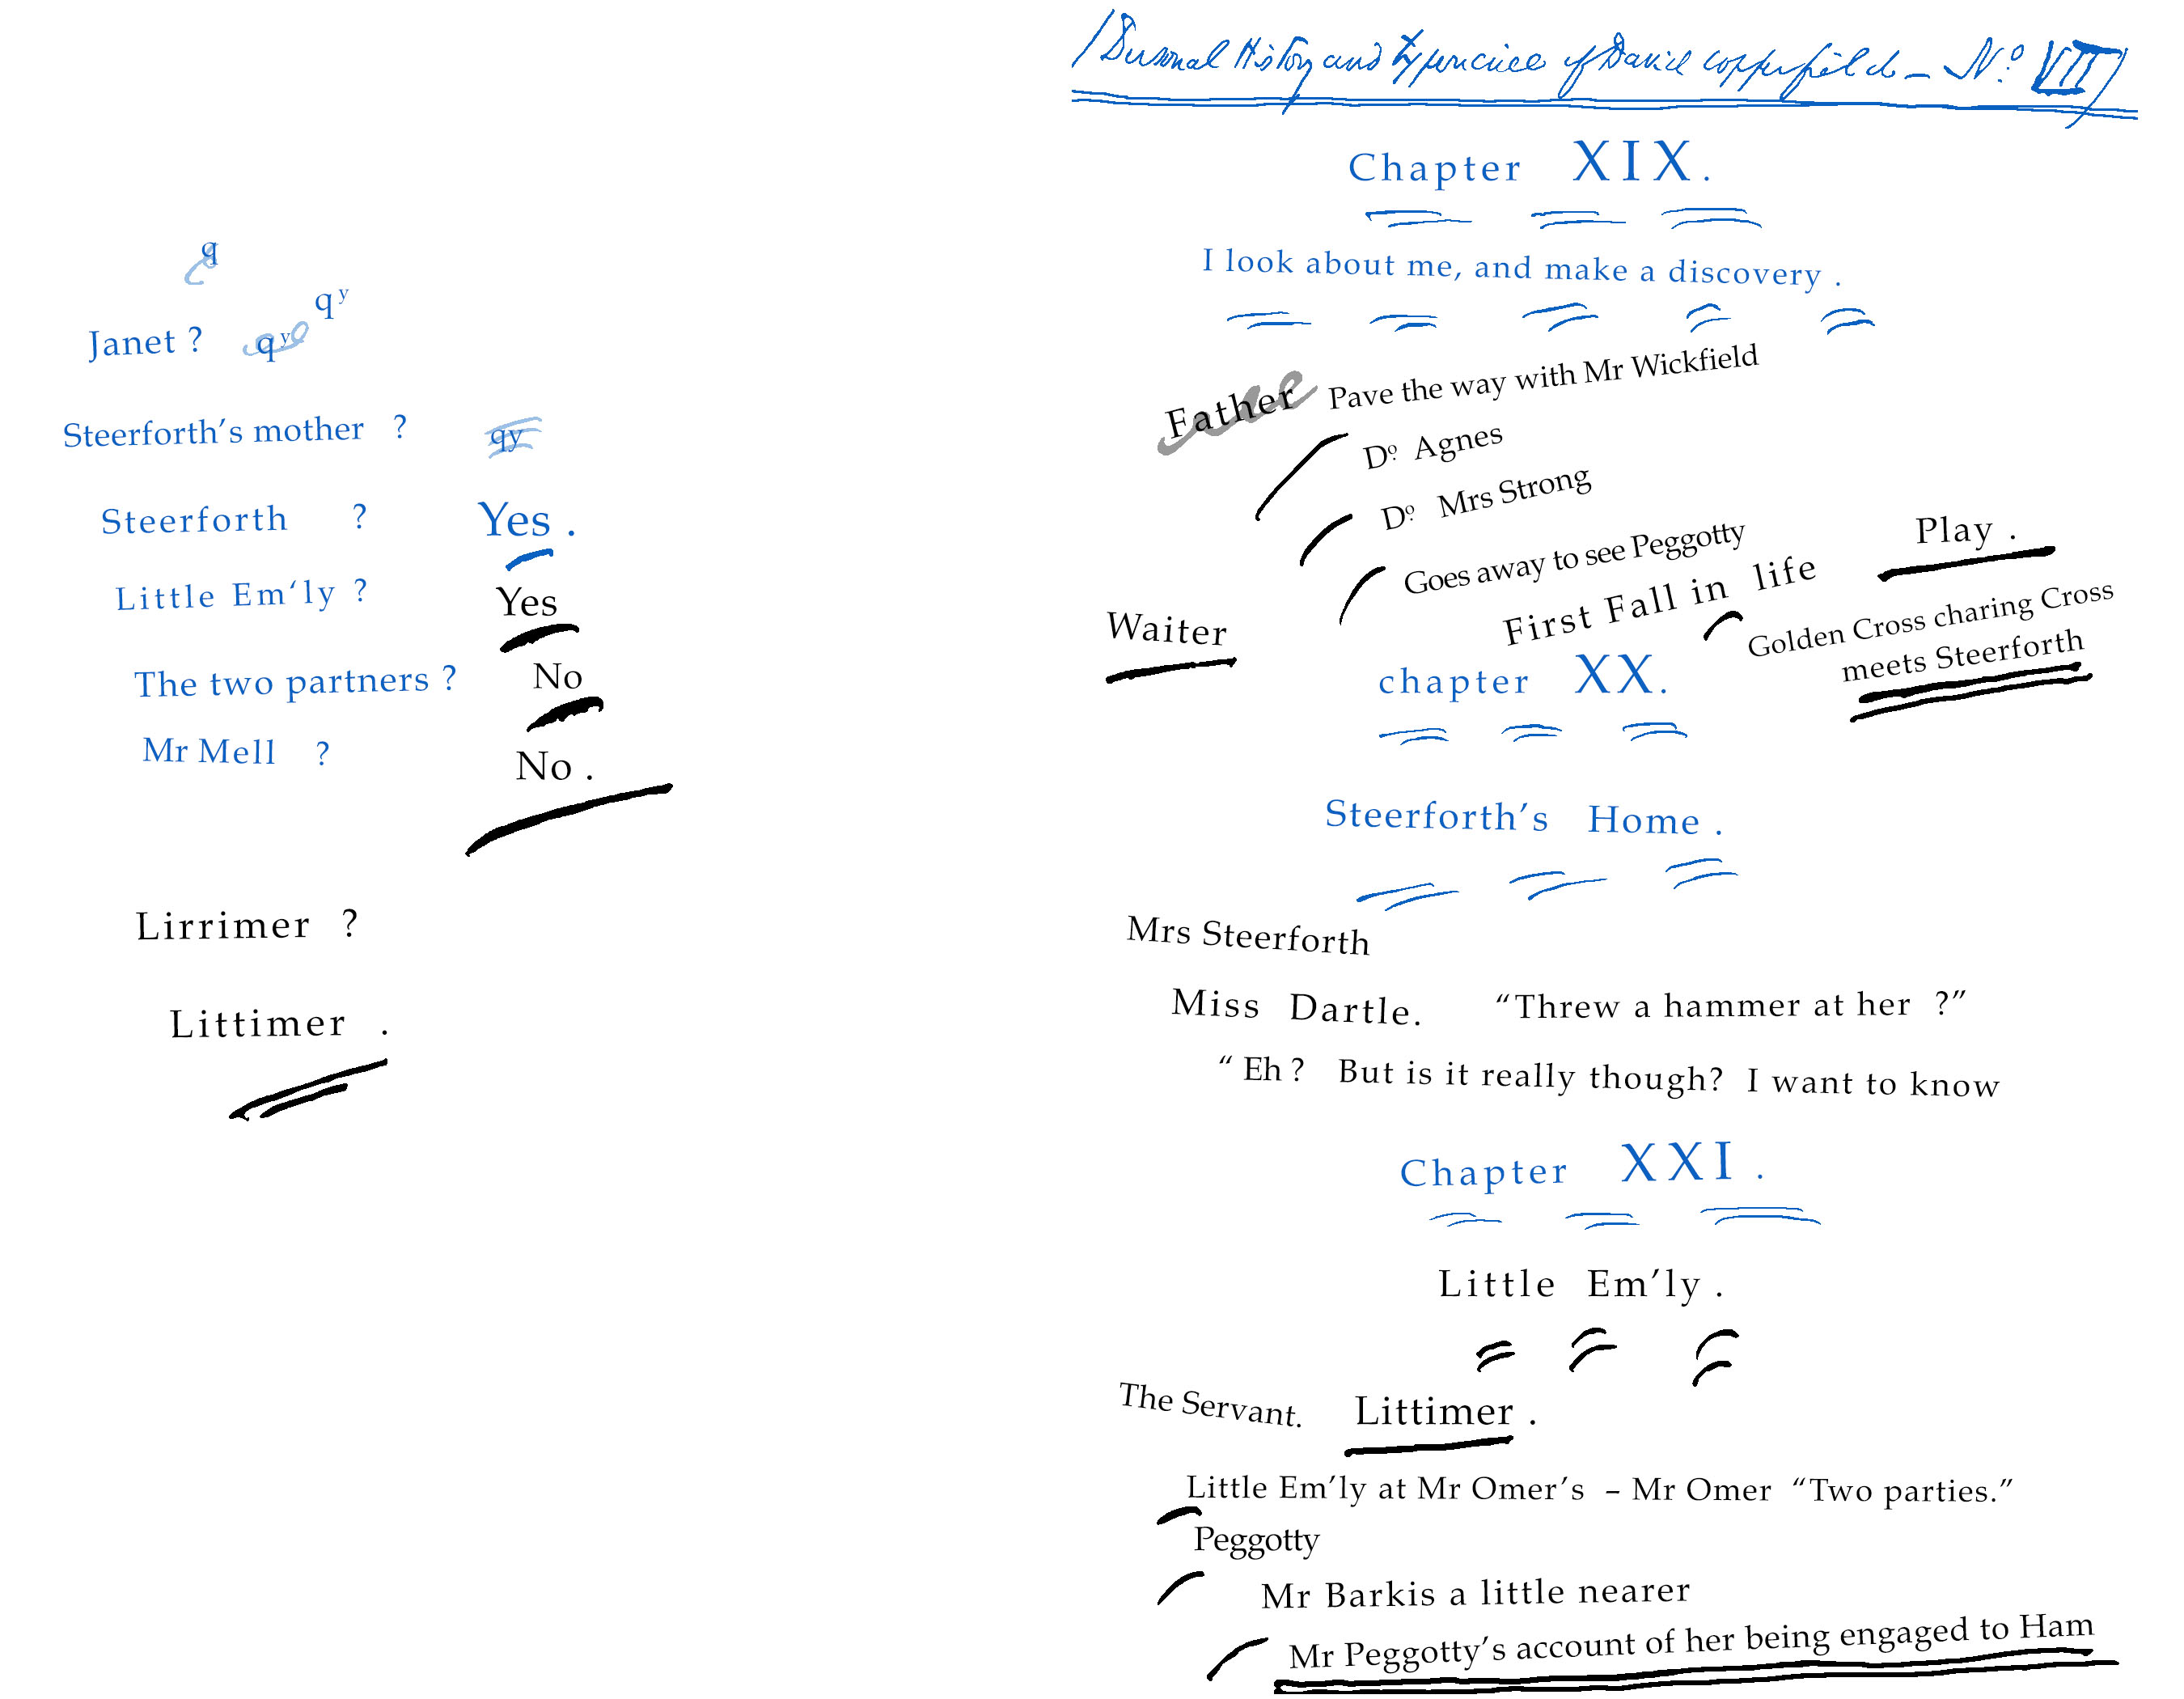 (Personal History and Experience of David Copperfield – Nº VII)
q
qy
Janet ? qy
Steerforth’s mother ? qy
Steerforth ? Yes .
Little Em‘ly ? Yes
The two partners ? No
Mr Mell ? No .
Lirrimer ?
Littimer .
Chapter XIX.
I look about me, and make a discovery .
Father Pave the way with Mr Wickfield
Dº Agnes
Dº Mrs Strong
Goes away to see Peggotty
Play .
First Fall in life
Waiter
Golden Cross charing Cross
meets Steerforth
chapter XX.
Steerforth’s Home .
Mrs Steerforth
Miss Dartle. “Threw a hammer at her ?”
“ Eh ? But is it really though? I want to know
Chapter XXI .
Little Em’ly .
The Servant. Littimer .
Little Em’ly at Mr Omer’s – Mr Omer “Two parties.”
Peggotty
Mr Barkis a little nearer
Mr Peggotty’s account of her being engaged to Ham